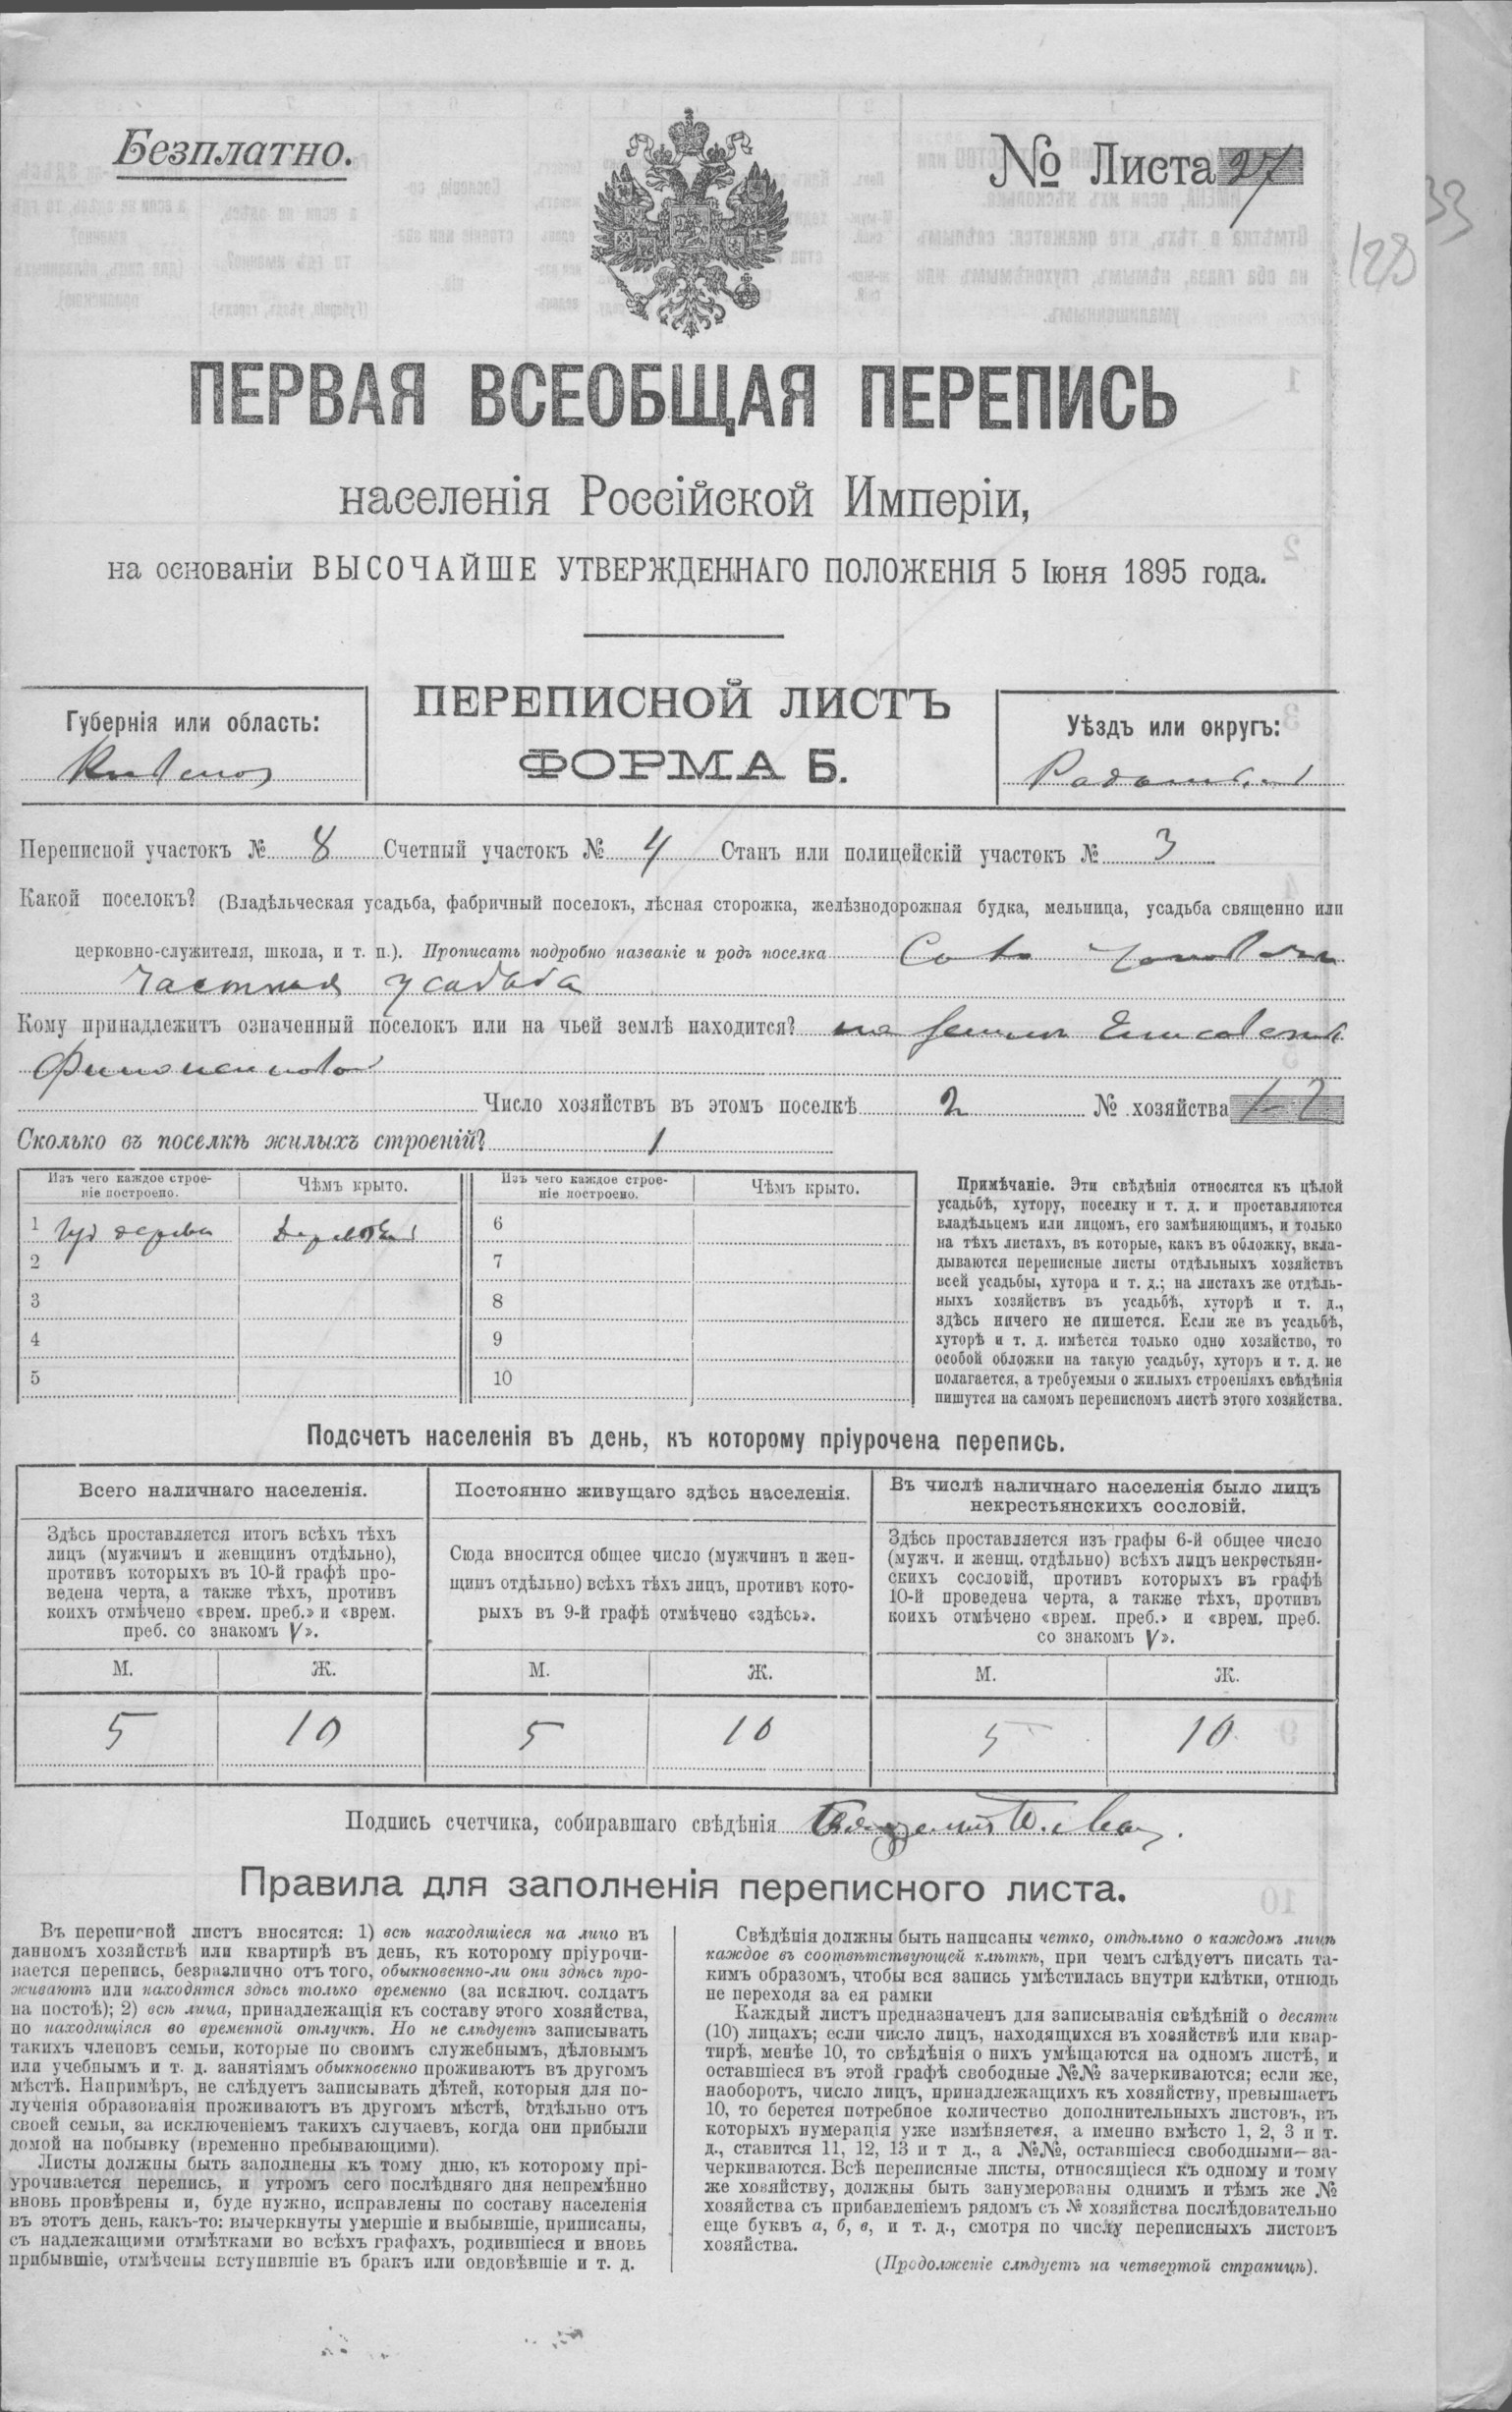 Безплатно.
№ Листа 27
33
128
ПЕРВАЯ ВСЕОБЩАЯ ПЕРЕПИСЬ
населенія Россійской Имперіи,
на основаніи ВЫСОЧАЙШЕ УТВЕРЖДЕННАГО ПОЛОЖЕНІЯ 5 Іюня 1895 года.
Губернія или область:
ПЕРЕПИСНОЙ ЛИСТЪ
ФОРМА Б.
Уѣздъ или округъ:
Переписной участокъ № 8 Счетный участокъ № 4 Станъ или полицейскій участокъ № 3
Какой поселокъ? (Владѣльческая усадьба, фабричный поселокъ, лѣсная сторожка, желѣзнодорожная будка, мельница, усадьба священно или
церковно-служителя, школа, и т. п.). Прописать подробно названіе и родъ поселка
частная усадьба
Кому принадлежитъ означенный поселокъ или на чьей землѣ находится? на
Число хозяйствъ въ этомъ поселкѣ 2 № хозяйства 1-2
Сколько въ поселкѣ жилыхъ строеній? 1
Изъ чего каждое строе-
ніе построено.
Чѣмъ крыто.
Изъ чего каждое строе-
ніе построено.
Чѣмъ крыто.
1 Изъ дерева
6
2
7
3
8
4
9
5
10
Примѣчаніе. Эти свѣдѣнія относятся къ цѣлой
усадьбѣ, хутору, поселку и т. д. и проставляются
владѣльцемъ или лицомъ, его замѣняющимъ, и только
на тѣхъ листахъ, въ которые, какъ въ обложку, вкла-
дываются переписные листы отдѣльныхъ хозяйствъ
всей усадьбы, хутора и т. д.; на листахъ же отдѣль-
ныхъ хозяйствъ въ усадьбѣ, хуторѣ и т. д.,
здѣсь ничего не пишется. Если же въ усадьбѣ,
хуторѣ и т. д. имѣется только одно хозяйство, то
особой обложки на такую усадьбу, хуторъ и т. д. не
полагается, а требуемыя о жилыхъ строеніяхъ свѣдѣнія
пишутся на самомъ переписномъ листѣ этого хозяйства.
Подсчетъ населенія въ день, къ которому пріурочена перепись.
Всего наличнаго населенія.
Здѣсь проставляется итогъ всѣхъ тѣхъ
лицъ (мужчинъ и женщинъ отдѣльно),
противъ которыхъ въ 10-й графѣ про-
ведена черта, а также тѣхъ, противъ
коихъ отмѣчено «врем. преб.» и «врем.
преб. со знакомъ V».
М. Ж.
5 10
Постоянно живущаго здѣсь населенія.
Сюда вносится общее число (мужчинъ и жен-
щинъ отдѣльно) всѣхъ тѣхъ лицъ, противъ кото-
рыхъ въ 9-й графѣ отмѣчено «здѣсь».
М. Ж.
5 10
Въ числѣ наличнаго населенія было лицъ
некрестьянскихъ сословій.
Здѣсь проставляется изъ графы 6-й общее число
(мужч. и женщ. отдѣльно) всѣхъ лицъ некрестьян-
скихъ сословій, противъ которыхъ въ графѣ
10-й проведена черта, а также тѣхъ, противъ
коихъ отмѣчено «врем. преб.» и «врем. преб.
со знакомъ V».
М. Ж.
5 10
Подпись счетчика, собиравшаго свѣдѣнія
Правила для заполненія переписного листа.
Въ переписной листъ вносятся: 1) всѣ находящіеся на лицо въ
данномъ хозяйствѣ или квартирѣ въ день, къ которому пріурочи-
вается перепись, безразлично отъ того, обыкновенно-ли они здѣсь про-
живаютъ или находятся здѣсь только временно (за исключ. солдатъ
на постоѣ); 2) всѣ лица, принадлежащія къ составу этого хозяйства,
но находящіяся во временной отлучкѣ. Но не слѣдуетъ записывать
такихъ членовъ семьи, которые по своимъ служебнымъ, дѣловымъ
или учебнымъ и т. д. занятіямъ обыкновенно проживаютъ въ другомъ
мѣстѣ. Напримѣръ, не слѣдуетъ записывать дѣтей, которыя для по-
лученія образованія проживаютъ въ другомъ мѣстѣ, отдѣльно отъ
своей семьи, за исключеніемъ такихъ случаевъ, когда они прибыли
домой на побывку (временно пребывающими).
Листы должны быть заполнены къ тому дню, къ которому прі-
урочивается перепись, и утромъ сего послѣдняго дня непремѣнно
вновь провѣрены и, буде нужно, исправлены по составу населенія
въ этотъ день, какъ-то: вычеркнуты умершіе и выбывшіе, приписаны,
съ надлежащими отмѣтками во всѣхъ графахъ, родившіеся и вновь
прибывшіе, отмѣчены вступившіе въ бракъ или овдовѣвшіе и т. д.
Свѣдѣнія должны быть написаны четко, отдѣльно о каждомъ лицѣ
каждое въ соотвѣтствующей клѣткѣ, при чемъ слѣдуетъ писать та-
кимъ образомъ, чтобы вся запись умѣстилась внутри клѣтки, отнюдь
не переходя за ея рамки
Каждый листъ предназначенъ для записыванія свѣдѣній о десяти
(10) лицахъ; если число лицъ, находящихся въ хозяйствѣ или квар-
тирѣ, менѣе 10, то свѣдѣнія о нихъ умѣщаются на одномъ листѣ, и
оставшіеся въ этой графѣ свободные №№ зачеркиваются; если же,
наоборотъ, число лицъ, принадлежащихъ къ хозяйству, превышаетъ
10, то берется потребное количество дополнительныхъ листовъ, въ
которыхъ нумерація уже измѣняется, а именно вмѣсто 1, 2, 3 и т.
д., ставится 11, 12, 13 и т д., а №№, оставшіеся свободными—за-
черкиваются. Всѣ переписные листы, относящіеся къ одному и тому
же хозяйству, должны быть занумерованы однимъ и тѣмъ же №
хозяйства съ прибавленіемъ рядомъ съ № хозяйства послѣдовательно
еще буквъ а, б, в, и т. д., смотря по числу переписныхъ листовъ
хозяйства.
(Продолженіе слѣдуетъ на четвертой страницѣ).